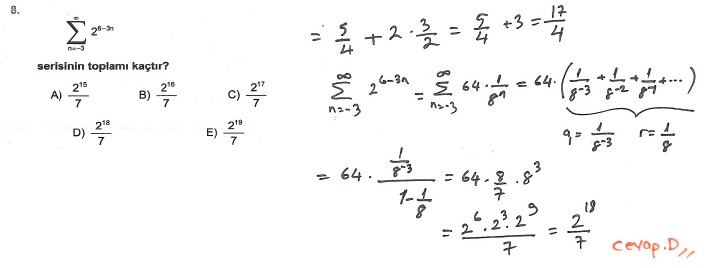 8.
∞
∑ 2^{6-3n}
n=-3
serisinin toplamı kaçtır?
A) 2^{15}/7 B) 2^{16}/7 C) 2^{17}/7
D) 2^{18}/7 E) 2^{19}/7
= 5/4 + 2 · 3/2 = 5/4 + 3 = 17/4
∑_{n=-3}^{∞} 2^{6-3n} = ∑_{n=-3}^{∞} 64 · 1/8^n = 64 · (1/8^{-3} + 1/8^{-2} + 1/8^{-1} + ...)
a = 1/8^{-3} r = 1/8
= 64 · (1/8^{-3})/(1 - 1/8) = 64 · 8/7 · 8^3
= 2^6 · 2^3 · 2^9/7 = 2^{18}/7
Cevap. D,,